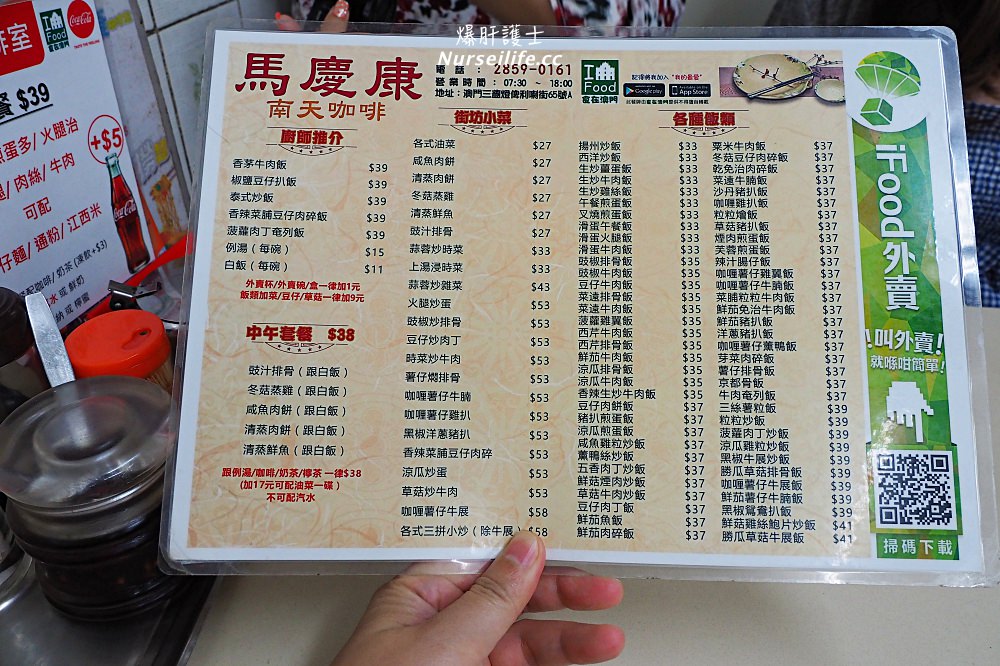 爆肝護士
Nurseilife.cc
馬慶康
南天咖啡
電話：2859-0161
營業時間：07:30 ~ 18:00
地址：澳門三盞燈俾利喇街65號A
I Food
食在澳門
記得將我加入"我的最愛"
Google play
App Store
廚師推介
香茅牛肉飯 $39
椒鹽豆仔扒飯 $39
泰式炒飯 $39
香辣菜脯豆仔肉碎飯 $39
菠蘿肉丁奄列飯 $39
例湯（每碗） $15
白飯（每碗） $11
外賣杯/外賣碗/盒一律加1元
飯類加菜/豆仔/草菇一律加9元
中午套餐 $38
豉汁排骨（跟白飯）
冬菇蒸雞（跟白飯）
咸魚肉餅（跟白飯）
清蒸肉餅（跟白飯）
清蒸鮮魚（跟白飯）
跟例湯/咖啡/奶茶/檸茶 一律$38
(加17元可配油菜一碟)
不可配汽水
街坊小菜
各式油菜 $27
咸魚肉餅 $27
清蒸肉餅 $27
冬菇蒸雞 $27
清蒸鮮魚 $27
豉汁排骨 $27
蒜蓉炒時菜 $33
上湯浸時菜 $33
蒜蓉炒雜菜 $43
火腿炒蛋 $53
豉椒炒排骨 $53
豆仔炒肉丁 $53
時菜炒牛肉 $53
薯仔燜排骨 $53
咖喱薯仔牛腩 $53
咖喱薯仔雞扒 $53
黑椒洋蔥豬扒 $53
香辣菜脯豆仔肉碎 $53
涼瓜炒蛋 $53
草菇炒牛肉 $53
咖喱薯仔牛展 $58
各式三拼小炒（除牛展） $58
各種飯類
揚州炒飯 $33
西洋炒飯 $33
生炒薑蛋飯 $33
生炒牛肉飯 $33
生炒雞絲飯 $33
午餐煎蛋飯 $33
叉燒煎蛋飯 $33
滑蛋午餐飯 $33
滑蛋火腿飯 $33
滑蛋牛肉飯 $33
豉椒排骨飯 $35
豉椒牛肉飯 $35
豆仔牛肉飯 $35
菜遠排骨飯 $35
菜遠牛肉飯 $35
菠蘿雞翼飯 $35
西芹牛肉飯 $35
西芹排骨飯 $35
鮮茄牛肉飯 $35
涼瓜排骨飯 $35
涼瓜牛肉飯 $35
香辣生炒牛肉飯 $35
豆仔肉餅飯 $37
豬扒煎蛋飯 $37
涼瓜煎蛋飯 $37
咸魚雞粒炒飯 $37
薰鴨絲炒飯 $37
五香肉丁炒飯 $37
鮮菇煙肉炒飯 $37
草菇牛肉炒飯 $37
豆仔肉丁飯 $37
鮮茄魚飯 $37
鮮茄肉碎飯 $37
粟米牛肉飯 $37
冬菇豆仔肉碎飯 $37
乾免治肉碎飯 $37
菜遠牛腩飯 $37
沙丹豬扒飯 $37
咖喱雞扒飯 $37
粒粒燴飯 $37
草菇豬扒飯 $37
煙肉煎蛋飯 $37
芙蓉煎蛋飯 $37
辣汁腸仔飯 $37
咖喱薯仔雞翼飯 $37
咖喱薯仔牛腩飯 $37
菜脯粒粒牛肉飯 $37
鮮茄免治牛肉飯 $37
鮮茄豬扒飯 $37
洋蔥豬扒飯 $37
咖喱薯仔薰鴨飯 $37
芽菜肉碎飯 $37
薯仔排骨飯 $37
京都骨飯 $37
牛肉奄列飯 $37
三絲薯粒飯 $39
粒粒炒飯 $39
菠蘿肉丁炒飯 $39
涼瓜雞粒炒飯 $39
黑椒牛展炒飯 $39
勝瓜草菇排骨飯 $39
咖喱薯仔牛展飯 $39
鮮茄薯仔牛腩飯 $39
黑椒鴛鴦扒飯 $39
鮮菇雞絲鮑片炒飯 $41
勝瓜草菇牛展飯 $41
iFood外賣
叫外賣!
就喺咁簡單!
掃碼下載
I Food
食在澳門
Coca-Cola
TASTE THE FEELING
啡室
餐 $39
蛋多/火腿治
+$5
/肉絲/牛肉
可配
仔麵/通粉/江西米
配咖啡/奶茶(凍飲+$3)
水或鮮奶
或檸蜜